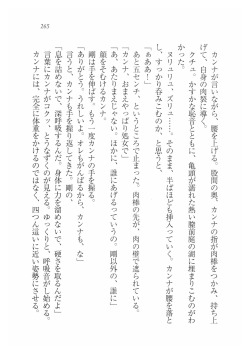 265
カンナが言いながら、腰を上げる。股間の奥、カンナの指が肉棒をつかみ、持ち上
げて、自身の肉裂に導く。
クチュ、かすかな恥音とともに、亀頭が濡れた熱い膣前庭の湖に埋まりこむのがわ
かった。
ズリュリュ、ズリュ……。そのまま、半ばほども挿入っていく。カンナが腰を落と
し、すっかり呑みこむのか、と思うと、
「ぁああ！」
あと五センチ、というところで止まった。肉棒の先が、肉の壁で遮られている。
「カンナ、おまえ、やっぱり処女で」
「あ、あたりまえじゃない。ほかに、誰にあげるっていうの。剛以外の、誰に」
顔をそむけるカンナ。
剛は手を伸ばす。もう一度カンナの手を握る。
「ありがとう、うれしいよ。オレもがんばるから、カンナも、な」
言うと、カンナも手を握り返してきた。剛の、
「息を詰めないで、深呼吸するんだ。身体に力を溜めないで、硬さを取るんだよ」
言葉にカンナがコクッ、とうなずくのが見える。ゆっくりと、呼吸音がし始める。
カンナには、完全に体重をかけるのではなく、四つん這いに近い姿勢にさせる。